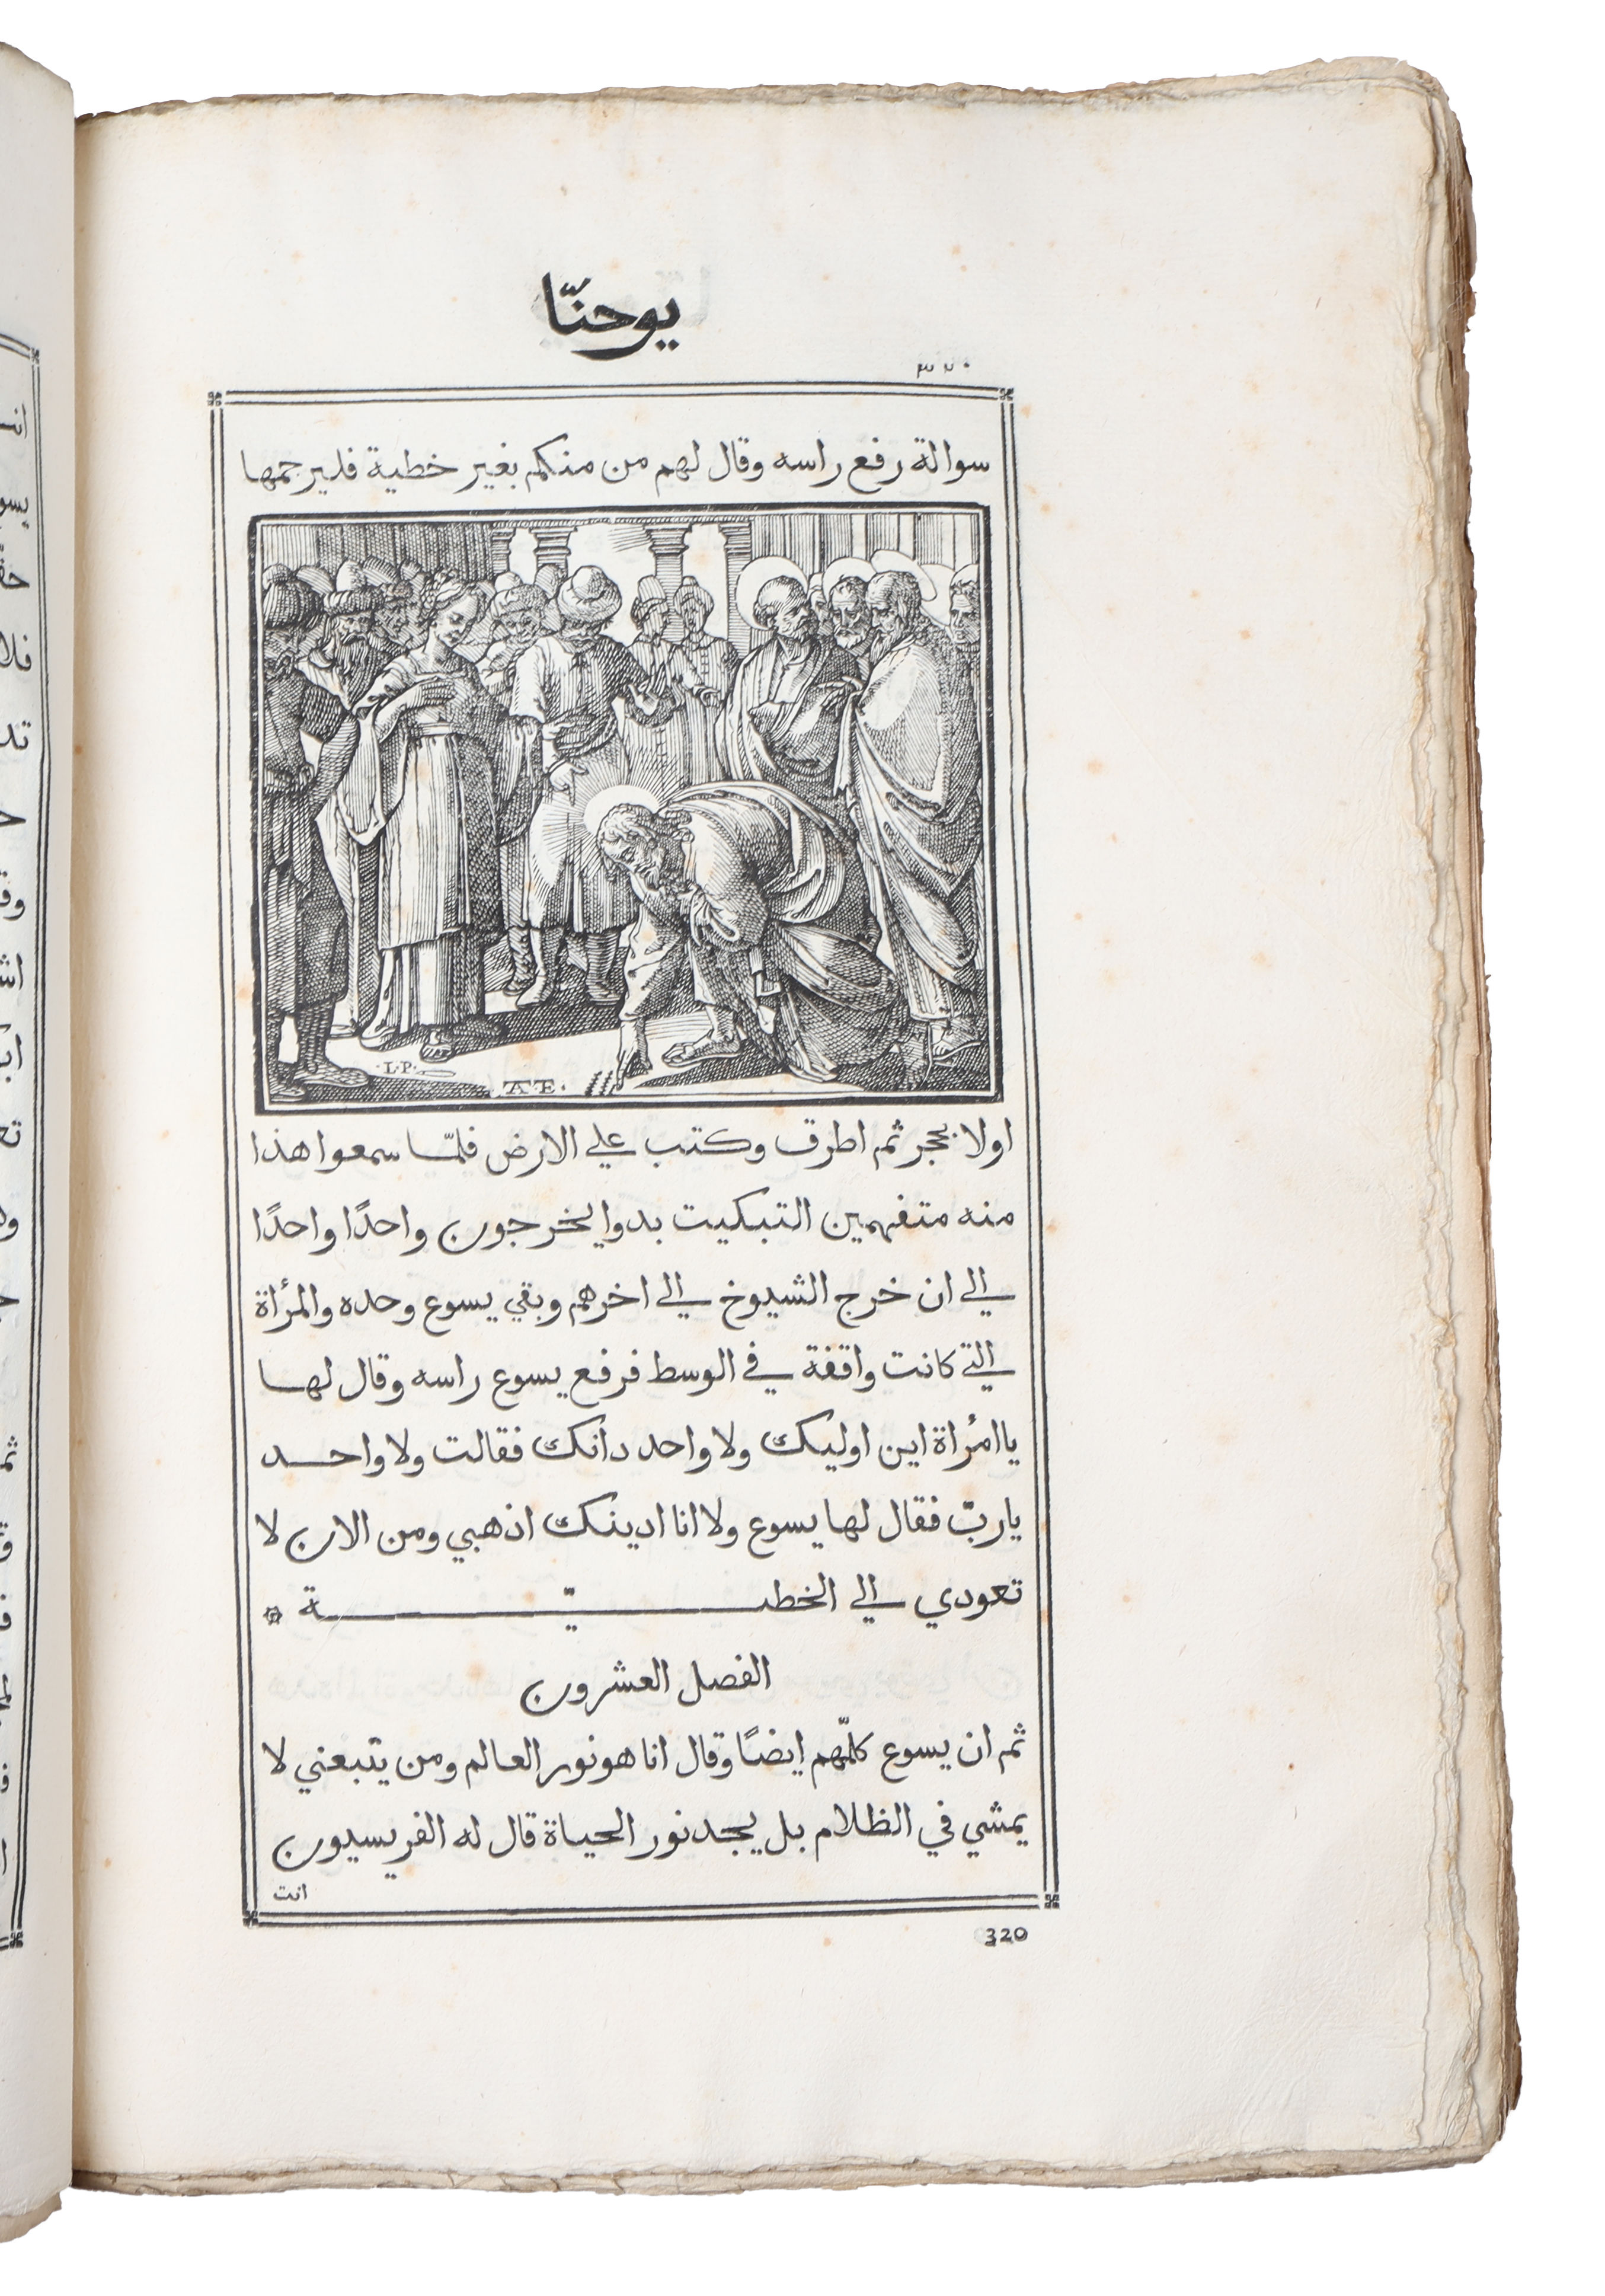 يوحنّا
٣٢٠
سوالة رفع راسه وقال لهم من منكم بغير خطية فليرجمها
L.P.
ATE.
اولا بحجر ثم اطرق وكتب علي الارض فلمّا سمعوا هذا
منه متفهمين التبكيت بدوا يخرجون واحدًا واحدًا
الي ان خرج الشيوخ الي اخرهم وبقي يسوع وحده والمرأة
التي كانت واقفة في الوسط فرفع يسوع راسه وقال لها
يا امرأة اين اوليك ولا واحد دانك فقالت ولا واحد
يا ربّ فقال لها يسوع ولا انا ادينك اذهبي ومن الان لا
تعودي الي الخطيّة
الفصل العشرون
ثم ان يسوع كلّمهم ايضًا وقال انا هو نور العالم ومن يتبعني لا
يمشي في الظلام بل يجد نور الحياة قال له الفريسيون
انت
320